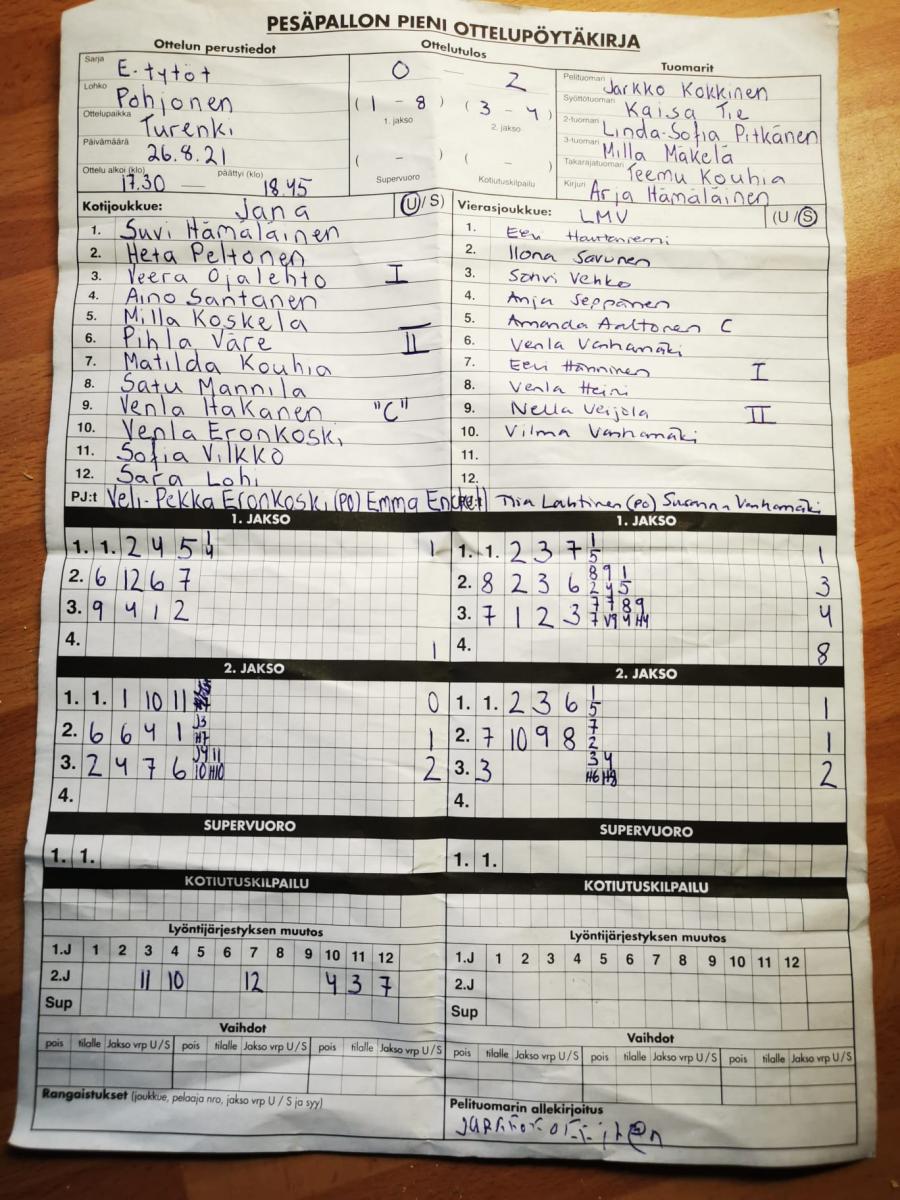 PESÄPALLON PIENI OTTELUPÖYTÄKIRJA
Ottelun perustiedot
Ottelutulos
Tuomarit
Sarja E-tytöt
Lohko Pohjonen
Ottelupaikka Turenki
Päivämäärä 26.8.21
Ottelu alkoi (klo) päättyi (klo)
17.30 — 18.45
0 — 2
(1 - 8) (3 - 4)
1. jakso 2. jakso
( - ) ( - )
Supervuoro Kotiutuskilpailu
Pelituomari Jarkko Kokkinen
Syöttötuomari Kaisa Tie
2-tuomari Linda-Sofia Pitkänen
3-tuomari Milla Mäkelä
Takarajatuomari Teemu Kouhia
Kirjuri Arja Hämäläinen
Kotijoukkue: Jana (U/S)
1. Suvi Hämäläinen
2. Heta Peltonen
3. Veera Ojalehto I
4. Aino Santanen
5. Milla Koskela
6. Pihla Väre II
7. Matilda Kouhia
8. Satu Mannila
9. Venla Hakanen "C"
10. Venla Eronkoski
11. Sofia Vilkko
12. Sara Lohi
PJ:t Veli-Pekka Eronkoski (PO) Emma
Vierasjoukkue: LMV (U/S)
1. Eevi Hautaniemi
2. Ilona Savunen
3. Sohvi Vehko
4. Anja Seppänen
5. Amanda Aaltonen C
6. Venla Vanhamäki
7. Eevi Hänninen I
8. Venla Heini
9. Nella Veijola II
10. Vilma Vanhamäki
11.
12.
Tiia Lahtinen (PO) Susanna Vanhamäki
1. JAKSO
1. 1. 2 4 5 1 4 1
2. 6 12 6 7
3. 9 4 1 2
4. 1
1. JAKSO
1. 1. 2 3 7 1 5 1
2. 8 2 3 6 8 9 1 2 4 5 3
3. 7 1 2 3 7 7 8 9 7 V9 4 H4 4
4. 8
2. JAKSO
1. 1. 1 10 11 0
2. 6 6 4 1 J3 H7 1
3. 2 4 7 6 J9 11 10 H10 2
4.
2. JAKSO
1. 1. 2 3 6 1 5 1
2. 7 10 9 8 7 2 1
3. 3 3 4 H6 H8 2
4.
SUPERVUORO
1. 1.
SUPERVUORO
1. 1.
KOTIUTUSKILPAILU
KOTIUTUSKILPAILU
Lyöntijärjestyksen muutos
1.J 1 2 3 4 5 6 7 8 9 10 11 12
2.J 11 10 12 4 3 7
Sup
Lyöntijärjestyksen muutos
1.J 1 2 3 4 5 6 7 8 9 10 11 12
2.J
Sup
Vaihdot
pois tilalle Jakso vrp U/S pois tilalle Jakso vrp U/S pois tilalle Jakso vrp U/S
Vaihdot
pois tilalle Jakso vrp U/S pois tilalle Jakso vrp U/S pois tilalle Jakso vrp U/S
Rangaistukset (joukkue, pelaaja nro, jakso vrp U / S ja syy)
Pelituomarin allekirjoitus